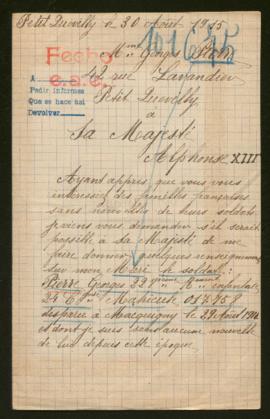 Petit Quevilly le 30 Août 1915
Mme Georges
42 rue Lavandier
Petit Quevilly
à
Sa Majesté
Alphonse XIII
Fecho
e.a.c.
A
Pedir informes
Que se hace aquí
Devolver
Ayant appris que vous vous
interessiez des familles françaises
sans nouvelles de leurs soldats
je viens vous demander s'il serait
possible à Sa Majesté de me
faire donner quelques renseignements
sur mon Mari le soldat:
Pierre Georges infanterie
Matricule 017958
disparu à Macquigny le 29 Août 1914
et dont je suis sans aucune nouvelle
de lui depuis cette époque